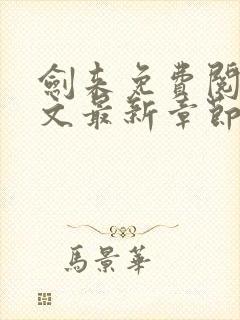 劍来免費閱
文最新章節
馬景華